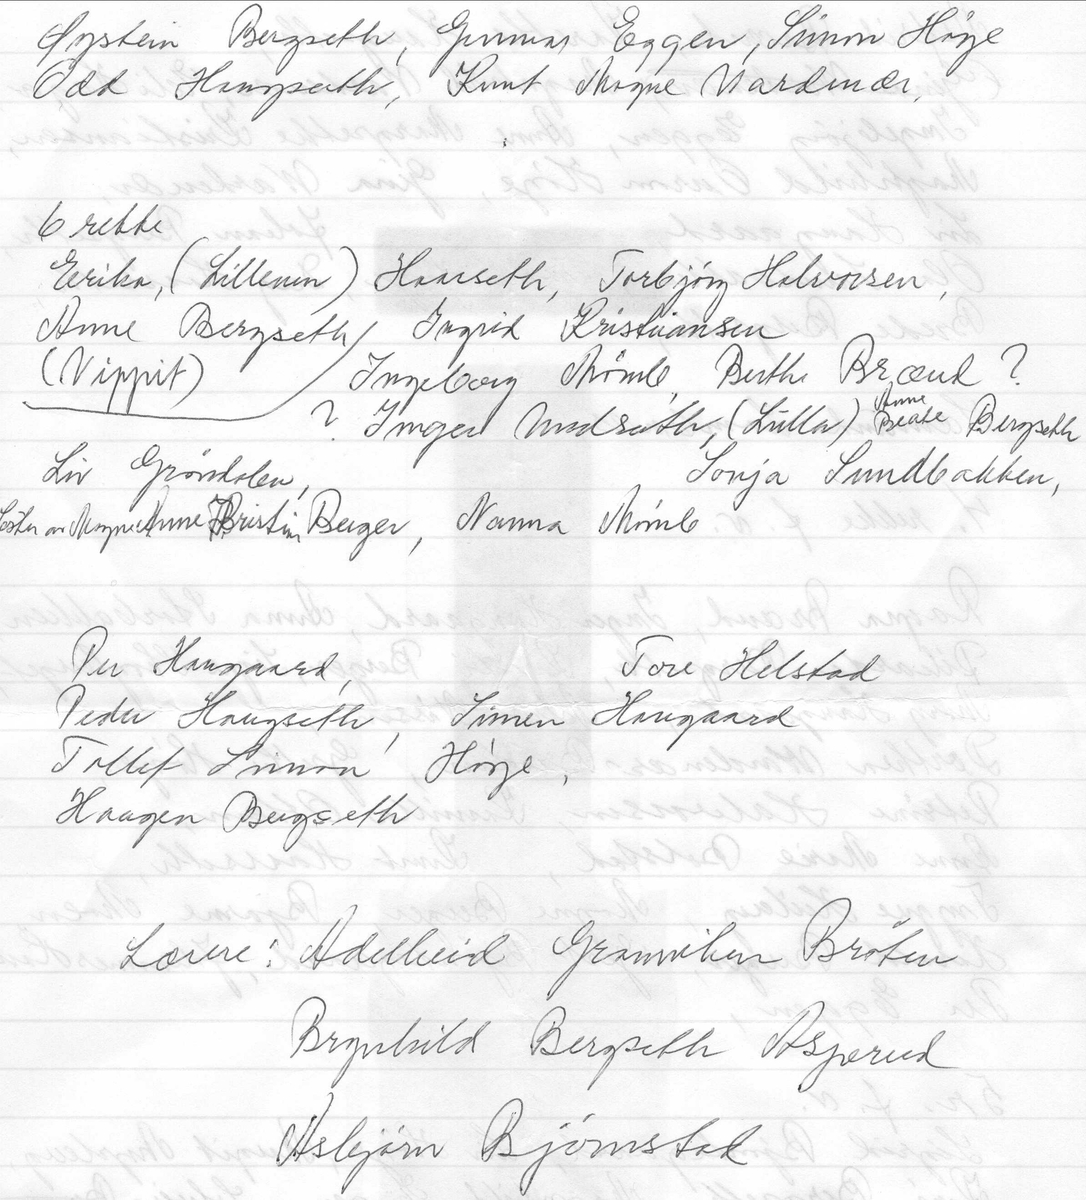 Øystein Bergseth, Gunnar Eggen, Simon Høye
Odd Haugseth, Knut Magne Nardenær,
6 rekke
Eerika, (Lillemin) Haarseth, Torbjörg Halvorsen,
Anne Bergseth Ingrid Kristiansen
(Vippit) Ingeborg Mömb, Berthe Brænd ?
? Inger Undseth, (Lülla) Anne Beate Bergseth
Liv Gröndalen, Sonja Sundbakken,
Søster av Magne Anne Kristin Berger, Nanna Mömb
Per Haugaard, Tore Helstad
Peder Haugseth, Simen Haugaard
Tollef Simon Høye,
Haagen Bergseth
Lærere: Adelheid Bröten
Brynhild Bergseth Asperud
Asbjörn Björnstad